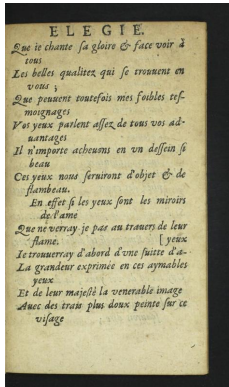 ELEGIE.
Que ie chante sa gloire & face voir à
tous
Les belles qualitez qui se trouuent en
vous ;
Que peuuent toutefois mes foibles tes-
moignages
Vos yeux parlent assez de tous vos ad-
uantages
Il n'importe acheuons en vn dessein si
beau
Ces yeux nous seruiront d'objet & de
flambeau.
En effet si les yeux sont les miroirs
de l'ame
Que ne verray je pas au trauers de leur
flame. [yeux
Ie trouueray d'abord d'vne suitte d'a-
La grandeur exprimée en ces aymables
yeux
Et de leur majesté la venerable image
Auec des trais plus doux peinte sur ce
visage